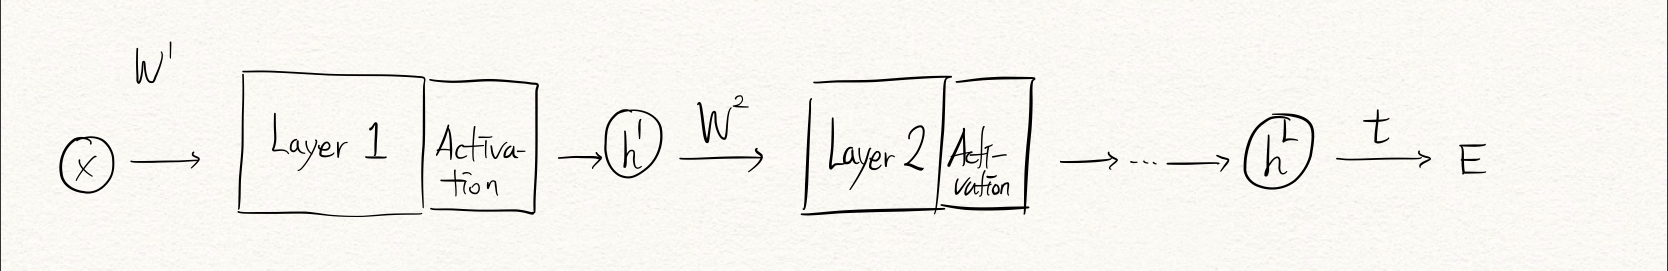 W¹
x
Layer 1
Activa-
tion
h¹
W²
Layer 2
Acti-
vation
...
hᴸ
t
E